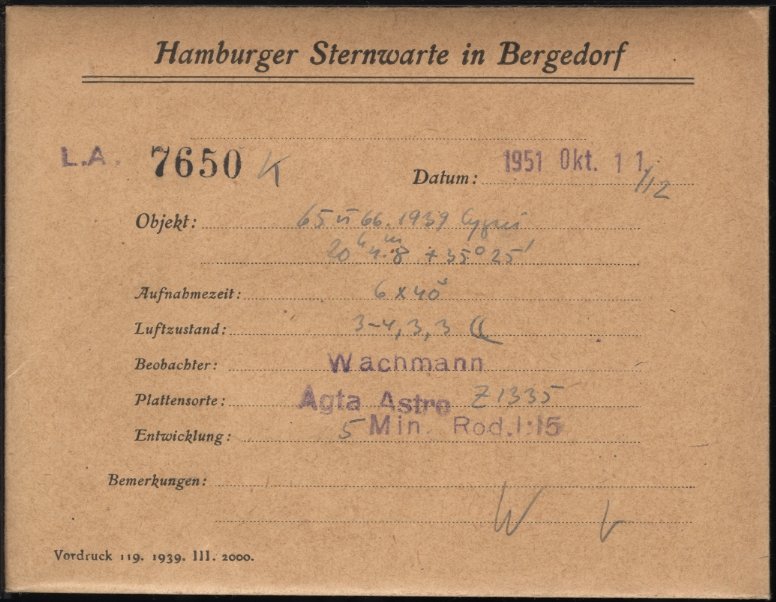 Hamburger Sternwarte in Bergedorf
L.A. 7650 K
Datum: 1951 Okt. 11./12
Objekt: 65 u 66.1939 Cygni
20h 4m.8 +35° 25'
Aufnahmezeit: 6 x 40
Luftzustand: 3-4, 3, 3 ☾
Beobachter: Wachmann
Plattensorte: Agfa Astro Z1335
Entwicklung: 5 Min. Rod. 1:15
Bemerkungen:
W
Vordruck 119. 1939. III. 2000.